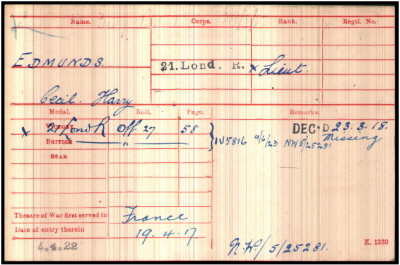 Name. Corps. Rank. Regtl. No.
EDMUNDS
21. Lond. R. * Lieut.
Cecil Harry
Medal. Roll. Page. Remarks.
VICTORY * 21 Lond R Off 27 58 DEC.D 23.3.18.
BRITISH " IV5816 9/6/23 NW5/25281 Missing
STAR
Theatre of War first served in France
Date of entry therein 19.4.17
4.8.22 N.W/5/25281. K. 1380